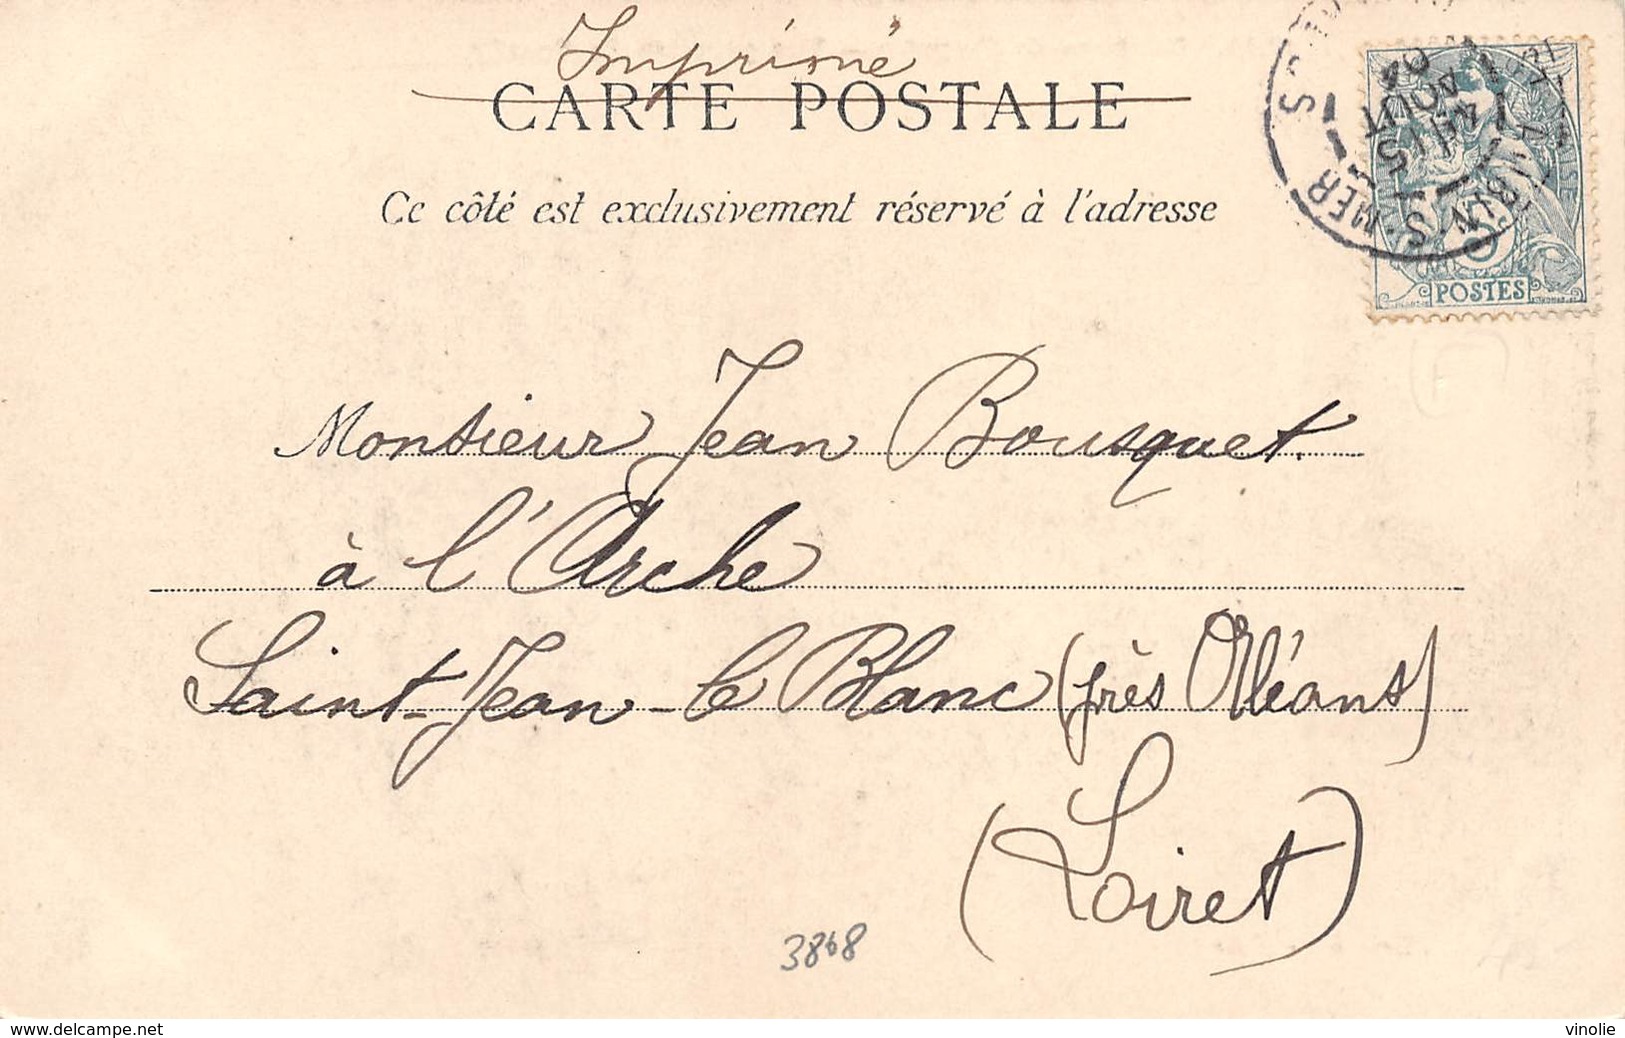 Imprimé
CARTE POSTALE
Ce côté est exclusivement réservé à l'adresse
POSTES
Monsieur Jean Bousquet
à l'Arche
Saint-Jean-le Blanc (près Orléans)
(Loiret)
3868
www.delcampe.net
vinolie